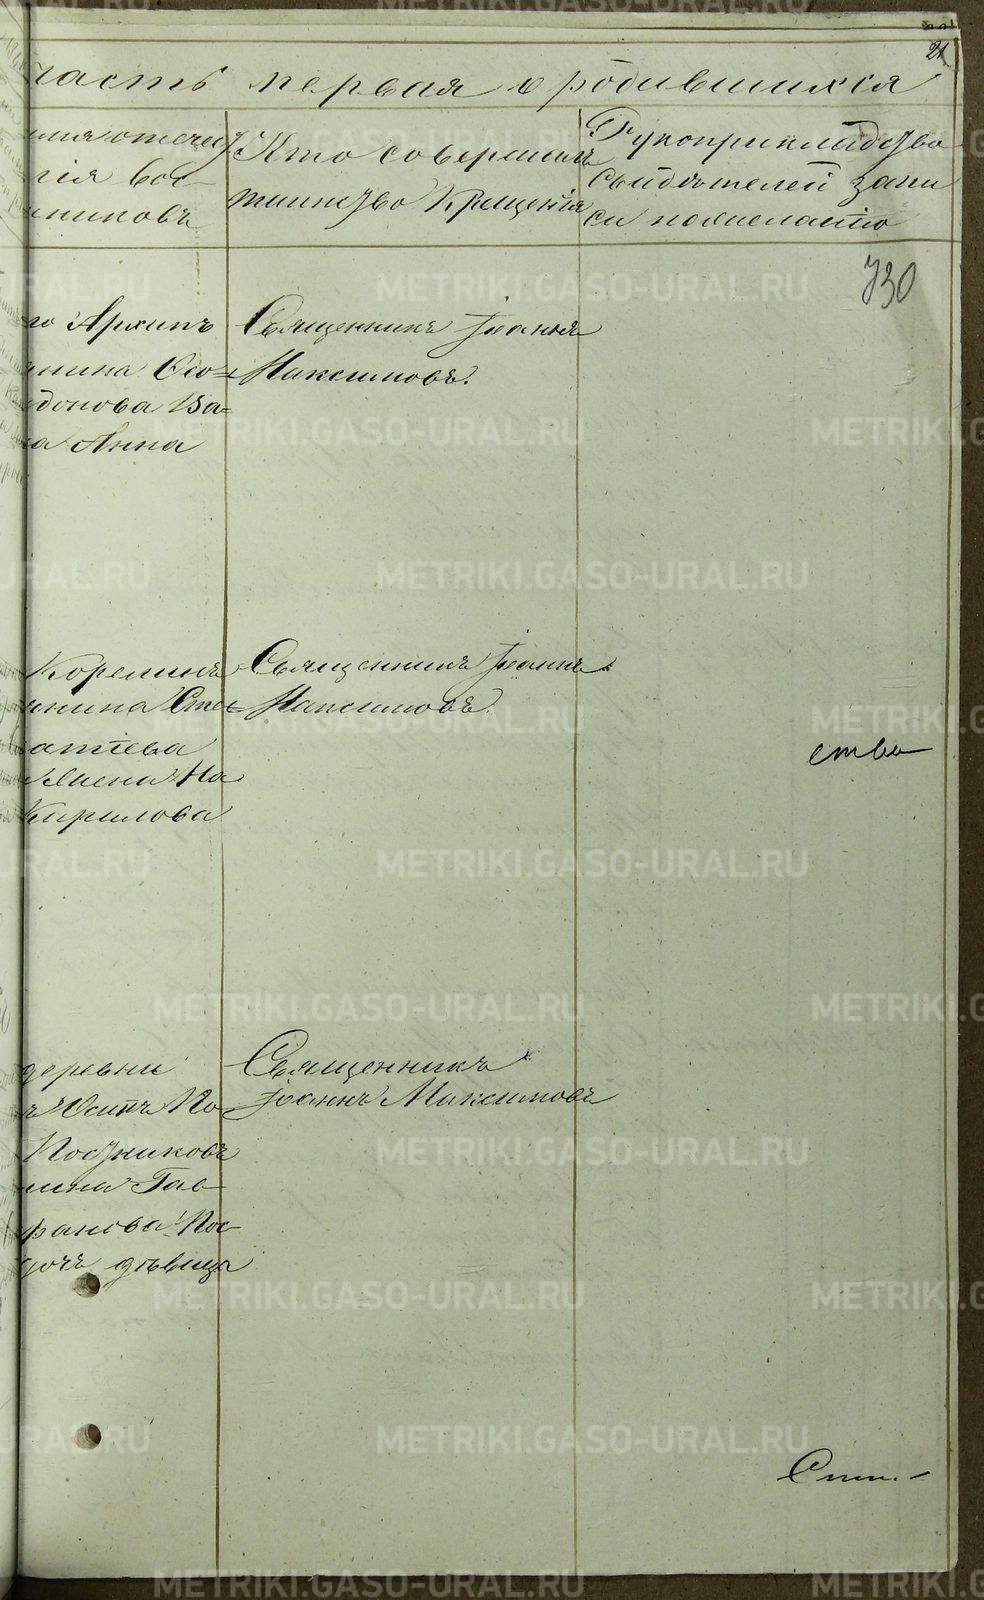 21
часть первая о родившихся
имя отечес
лія вос
никовъ
Кто совершалъ
таинство Крещенія
Рукоприкладство
свидѣтелей запи
си по желанію
730
го Архипъ
нина Осо=
донова Ва=
а Анна
Священникъ Іоаннъ
Максимовъ.
Корелинъ
нина Сте=
атіева
Кирилова
Священникъ Іоаннъ
Максимовъ.
ства
деревни
ъ Осипъ По
Постниковъ
ина Гав
фанова Пос
дочь дѣвица
Священникъ
Іоаннъ Максимовъ
METRIKI.GASO-URAL.RU